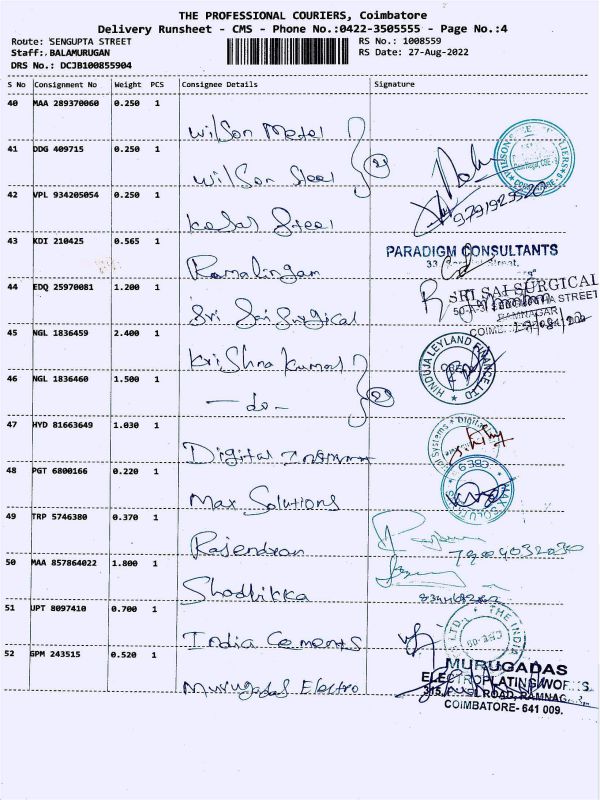 THE PROFESSIONAL COURIERS, Coimbatore
Delivery Runsheet - CMS - Phone No.:0422-3505555 - Page No.:4
Route: SENGUPTA STREET RS No.: 1008559
Staff: BALAMURUGAN RS Date: 27-Aug-2022
DRS No.: DCJB100855904
S No Consignment No Weight PCS Consignee Details Signature
40 MAA 289370060 0.250 1
Wilson Metal
41 DDG 409715 0.250 1
Wilson Steel
42 VPL 934205054 0.250 1
Kosar Steel
9791929520
43 KDI 210425 0.565 1
PARADIGM CONSULTANTS
Ramalingam
44 EDQ 25970081 1.200 1
SRI SAI SURGICAL
STREET
RAMNAGAR
Sri Sai Surgical
45 NGL 1836459 2.400 1
Krishna Kumar
HINDUJA LEYLAND FINANCE LTD
46 NGL 1836460 1.500 1
-do-
47 HYD 81663649 1.030 1
Digital
48 PGT 6800166 0.220 1
Max Solutions
49 TRP 5746380 0.370 1
Rajendran
50 MAA 857864022 1.800 1
Shadhikka
51 UPT 8097410 0.700 1
India Cements
THE INDIA
52 GPM 243515 0.520 1
MURUGADAS
ELECTROPLATING WORKS
Murugadas Electro
COIMBATORE- 641 009.